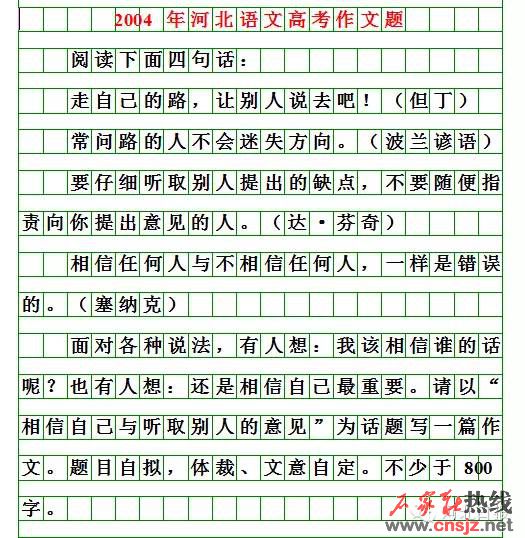 2004 年河北语文高考作文题
阅读下面四句话：
走自己的路，让别人说去吧！（但丁）
常问路的人不会迷失方向。（波兰谚语）
要仔细听取别人提出的缺点，不要随便指
责向你提出意见的人。（达·芬奇）
相信任何人与不相信任何人，一样是错误
的。（塞纳克）
面对各种说法，有人想：我该相信谁的话
呢？也有人想：还是相信自己最重要。请以“
相信自己与听取别人的意见”为话题写一篇作
文。题目自拟，体裁、文意自定。不少于 800
字。
石家庄热线
www.cnsjz.net